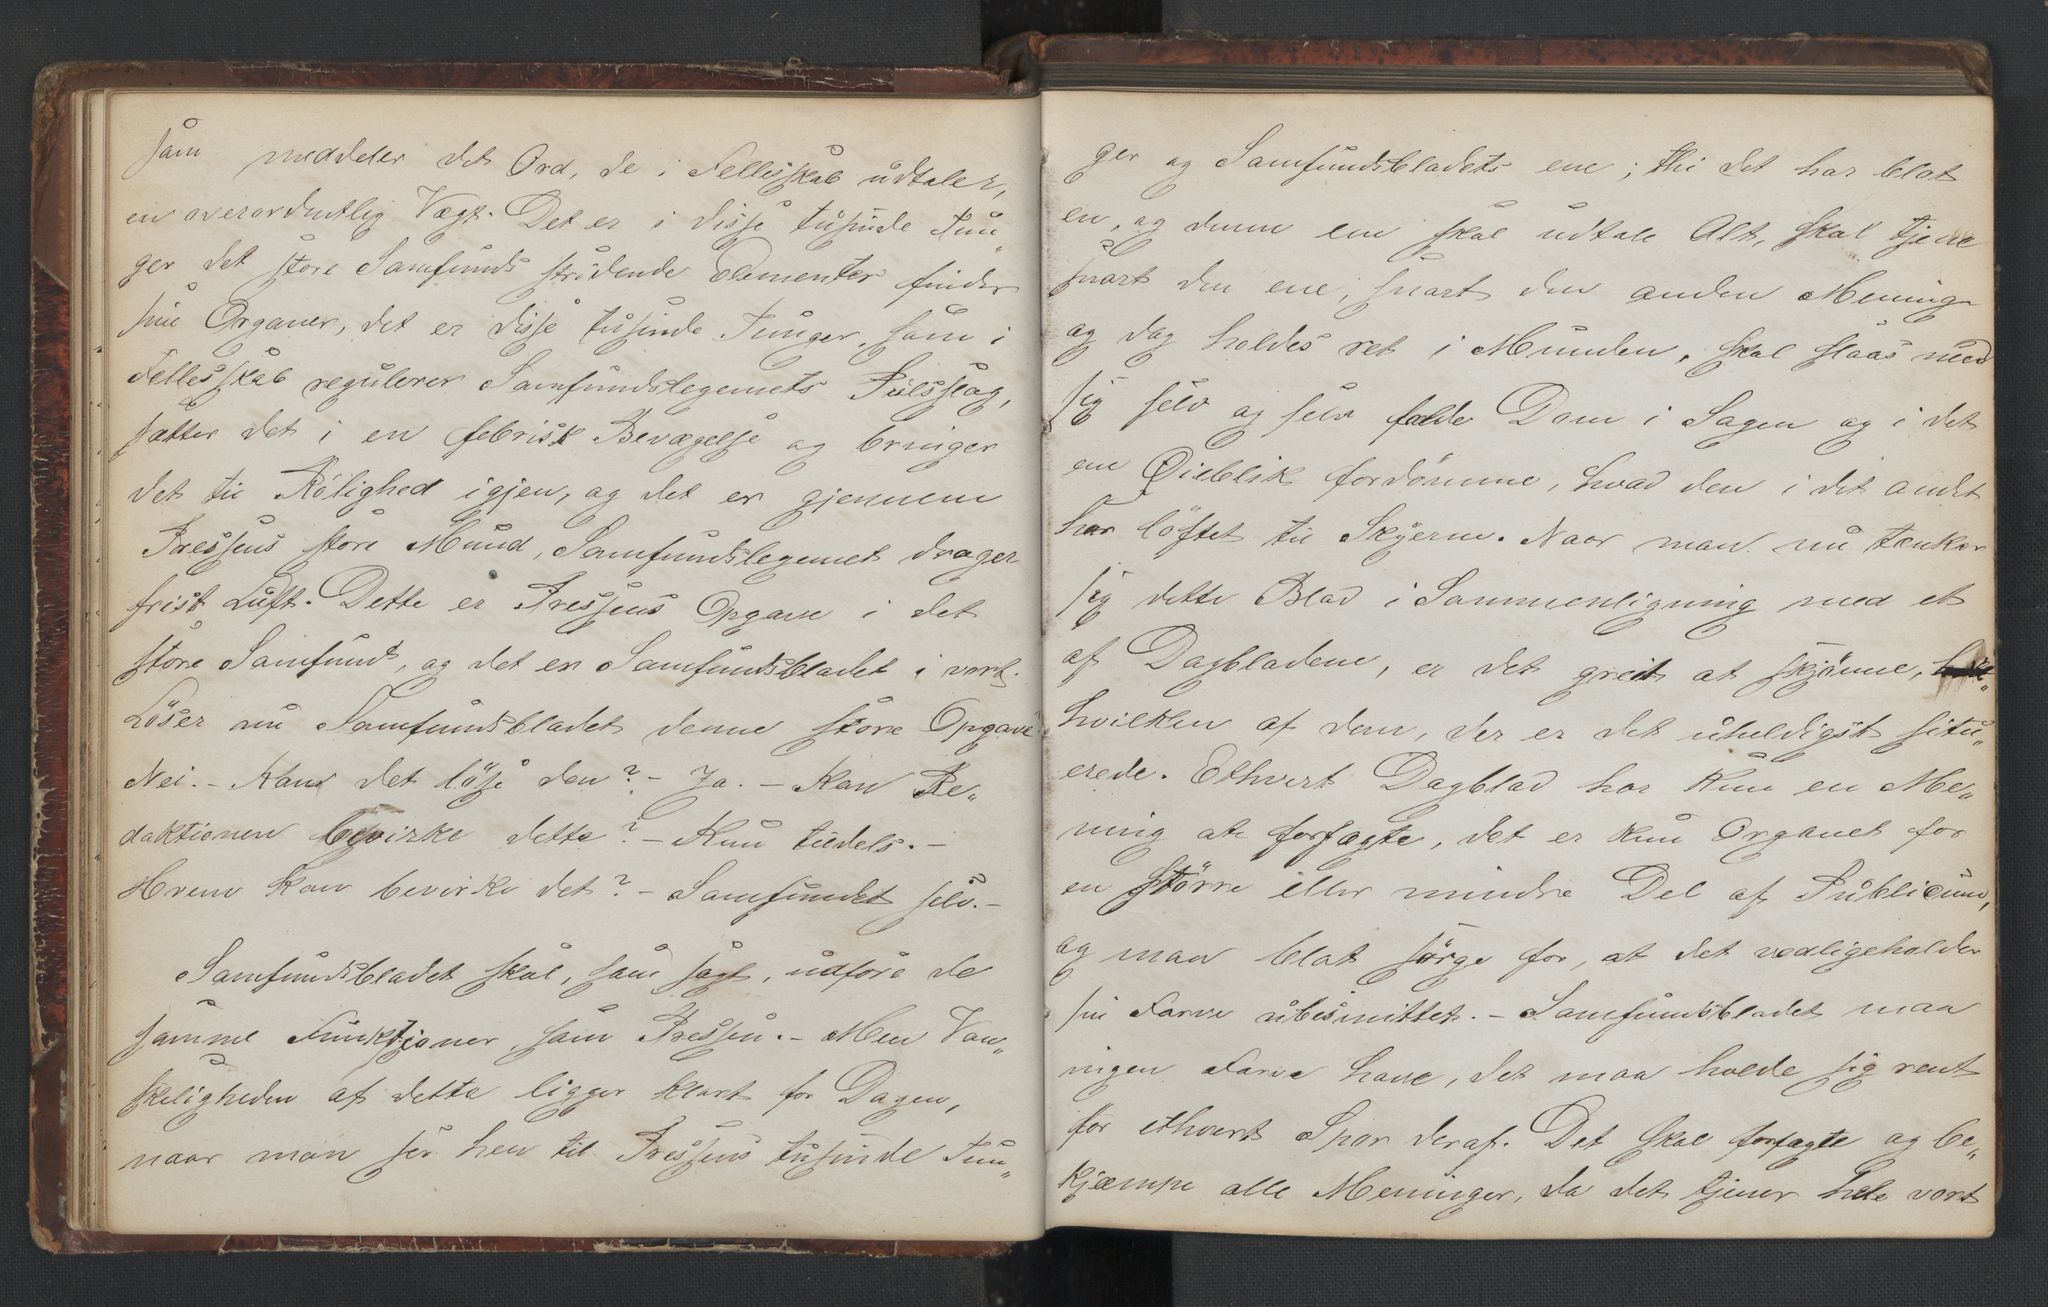 som meddeler det Ord, de i Fellesskab udtaler,
en overordentlig Vægt. Det er i disse tusinde Tun„
ger det store Samfunds stridende Elementer finder
sine Organer, det er disse tusinde Tunger, som i
Fellesskab regulerer Samfundslegemets Pulsslag,
sætter det i en febrisk Bevægelse og bringer
det til Rolighed igjen, og det er gjennem
Pressens store Mund, Samfundslegemet drager
frisk Luft. Dette er Pressens Opgave i det
store Samfund, og det er Samfundsbladet i vort.
Løser nu Samfundsbladet denne store Opgave
Nei. – Kan det løse den? – Ja. – Kan Re„
daktionen bevirke dette? – Kun tildels. –
Hvem kan bevirke det? – Samfundet selv. –
Samfundsbladet skal, som sagt, udføre de
samme Funktioner, som Pressen. – Men Van„
skeligheden af dette ligger klart for Dagen,
naar man ser hen til Pressens tusinde Tun„
ger og Samfundsbladets ene; thi det har blot
en, og denne ene skal udtale Alt, skal tjene
snart den ene, snart den anden Mening
og dog holdes ret i Munden, skal slaas med
sig selv og selv fælde Dom i Sagen og i det
ene Øieblik fordømme, hvad den i det andet
har løftet til Skyerne. Naar man nu tænker
sig dette Blad i Sammenligning med et
af Dagbladene, er det greit at skjønne,
hvilken af dem, der er det uheldigst situ„
erede. Ethvert Dagblad har kun en Me„
ning at forfægte, det er kun Organet for
en større eller mindre Del af Publicum,
og man blot sørge for, at det vedligeholder
sin Farve ubesmittet. – Samfundsbladet maa
ingen Farve have, det maa holde sig rent
for ethvert Spor deraf. Det skal forfægte og be„
kjæmpe alle Meninger, da det tjener hele vort